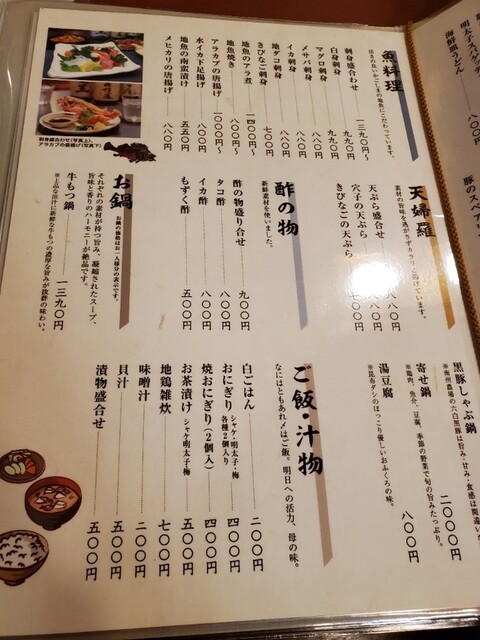 魚料理
活きの良いかごしまの地魚にこだわっています。
刺身盛合わせ 一三九〇円〜
白身刺身 九九〇円
マグロ刺身 九九〇円
メサバ刺身 八八〇円
イカ刺身 八八〇円
地ダコ刺身 八八〇円
きびなご刺身 七〇〇円
地魚のアラ煮 一四〇〇円〜
地魚焼き 八〇〇円〜
アラカブの唐揚げ 一〇〇〇円〜
水イカ下足揚げ 八八〇円
地魚の南蛮漬け 五五〇円
メヒカリの唐揚げ 八八〇円
刺身盛合わせ(写真上)、
アラカブの唐揚げ(写真下)
明太子スパゲッテ
海鮮皿うどん
八〇〇円
豚のスペアリ
天婦羅
素材の旨味を逃がさずカラリと揚げています。
天ぷら盛合せ
穴子の天ぷら 八八〇円
きびなごの天ぷら
酢の物
新鮮素材を使いました。
酢の物盛り合せ 九〇〇円
タコ酢 八〇〇円
イカ酢 八〇〇円
もずく酢 五〇〇円
お鍋
お鍋の価格はお一人様分の表示です。
それぞれの素材が持つ旨み、凝縮されたスープ、
旨味と香りのハーモニーが絶品です。
牛もつ鍋 一三九〇円
※上品な出汁に新鮮な牛もつの濃厚な旨みが抜群の味わい。
黒豚しゃぶ鍋 二〇〇〇円
寄せ鍋 八〇〇円
※鶏肉、魚介、豆腐、季節の野菜で旬の旨みたっぷり。
湯豆腐
※昆布ダシのほっこり優しいおふくろの味。
ご飯・汁物
なにはともあれ〆はご飯。明日への活力、母の味。
白ごはん 二〇〇円
おにぎり シャケ・明太子・梅 各種2個入り 四〇〇円
焼おにぎり(2個入) 四〇〇円
お茶漬け シャケ・明太子・梅 五〇〇円
地鶏雑炊 七〇〇円
味噌汁 二〇〇円
貝汁 五〇〇円
漬物盛合せ 五〇〇円